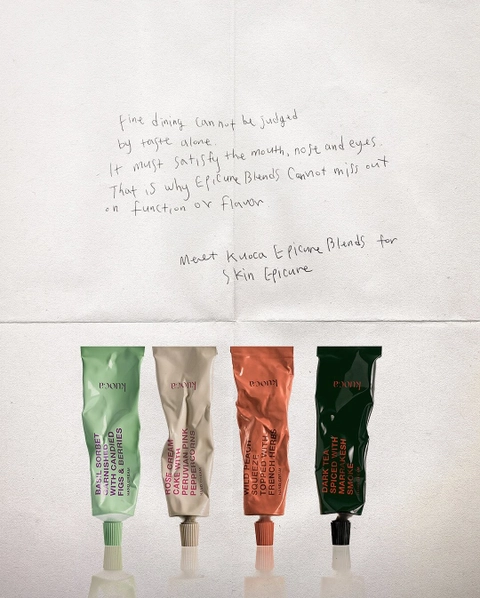 Fine dining cannot be judged
by taste alone.
It must satisfy the mouth, nose and eyes.
That is why Epicure Blends cannot miss out
on function or flavor
Meet Kuoca Epicure Blends for
Skin Epicure
kuoca
BASIL SORBET
GARNISHED
WITH CANDIED
FIGS & BERRIES
HAND CREAM
kuoca
ROSE CREAM
CAKE WITH
PERUVIAN PINK
PEPPERCORNS
kuoca
WILD PEACH
SQUEEZE
TOPPED WITH
FRENCH HERBS
kuoca
DARK TEA
SPICED WITH
MARRAKESH
SMOKE